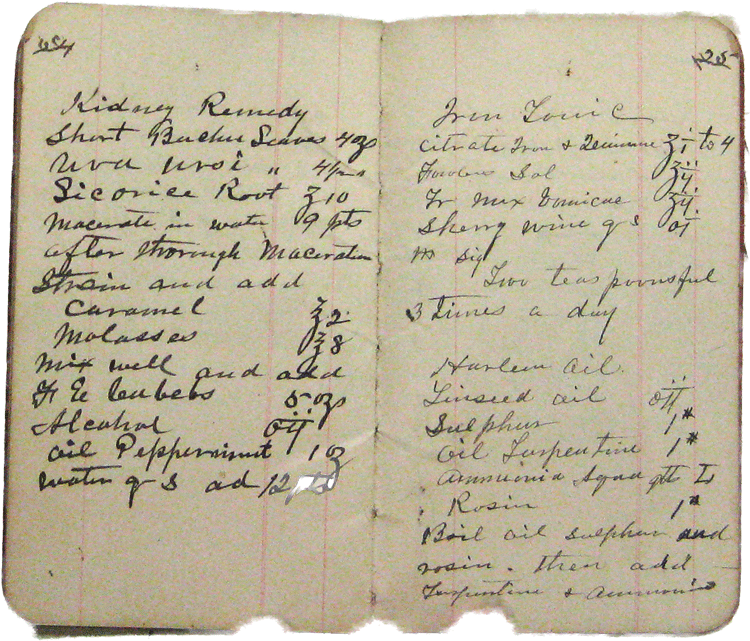 Kidney Remedy
Short Buchu Leaves 4 oz
Uva Ursi "
Licorice Root ʒ 10
Macerate in water 9 pts
after thorough Maceration
Strain and add
Caramel ℥ 2
Molasses ℥ 8
mix well and add
F E Cubebs 5 oz
Alcohol Oii
Oil Peppermint 1 oz
water q s ad 12 pts
25
Iron Tonic
Citrate Iron & Quinine ʒi to 4
Fowlers Sol ʒii
Tr Nux Vomicae
Sherry wine q s Oi
M Sig
Two teaspoonsful
3 times a day
Harlem Oil.
Linseed oil Oii
Sulphur 1 #
Oil Turpentine 1 #
Ammonia Aqua gtt L
Rosin 1 #
Boil oil sulphur and
rosin. then add
Turpentine & Ammonia